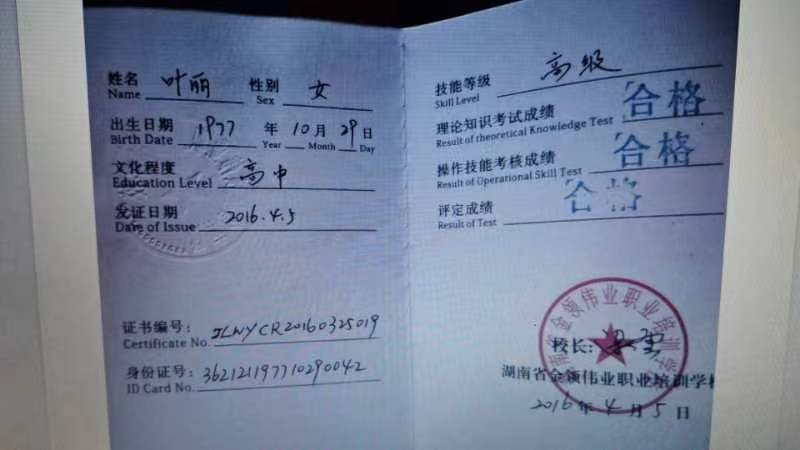 姓名 叶丽 性别 女
Name Sex
出生日期 1977 年 10 月 29 日
Birth Date Year Month Day
文化程度 高中
Education Level
发证日期 2016.4.5
Date of Issue
证书编号: JLWYCR20160325019
Certificate No.
身份证号: 362121197710290042
ID Card No.
技能等级 高级
Skill Level
理论知识考试成绩 合格
Result of theoretical Knowledge Test
操作技能考核成绩 合格
Result of Operational Skill Test
评定成绩 合格
Result of Test
湖南省金领伟业职业培训学校
校长:
湖南省金领伟业职业培训学校
2016 年 4 月 5 日